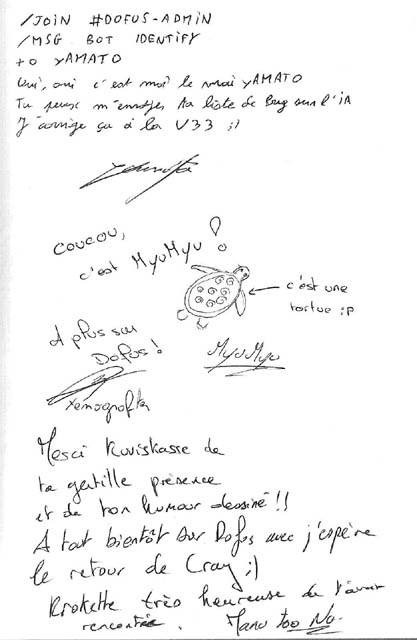 /JOIN #DOFUS-ADMIN
/MSG BOT IDENTIFY
to yAMATO
Oui, oui c'est moi le vrai yAMATO
Tu peux m'envoyer ta liste de Bug sur l'iA
J'corrige ça à la V33 ;)
coucou,
c'est MyuMyu !
c'est une
tortue :p
A plus sur
Dofus !
MyuMyu
Xenografta
Merci Kuviskasse de
ta gentille présence
et de ton humour dessiné !!
A tout bientôt sur Dofus avec j'espère
le retour de Cray ;)
Krokette très heureuse de t'avoir
rencontrée.